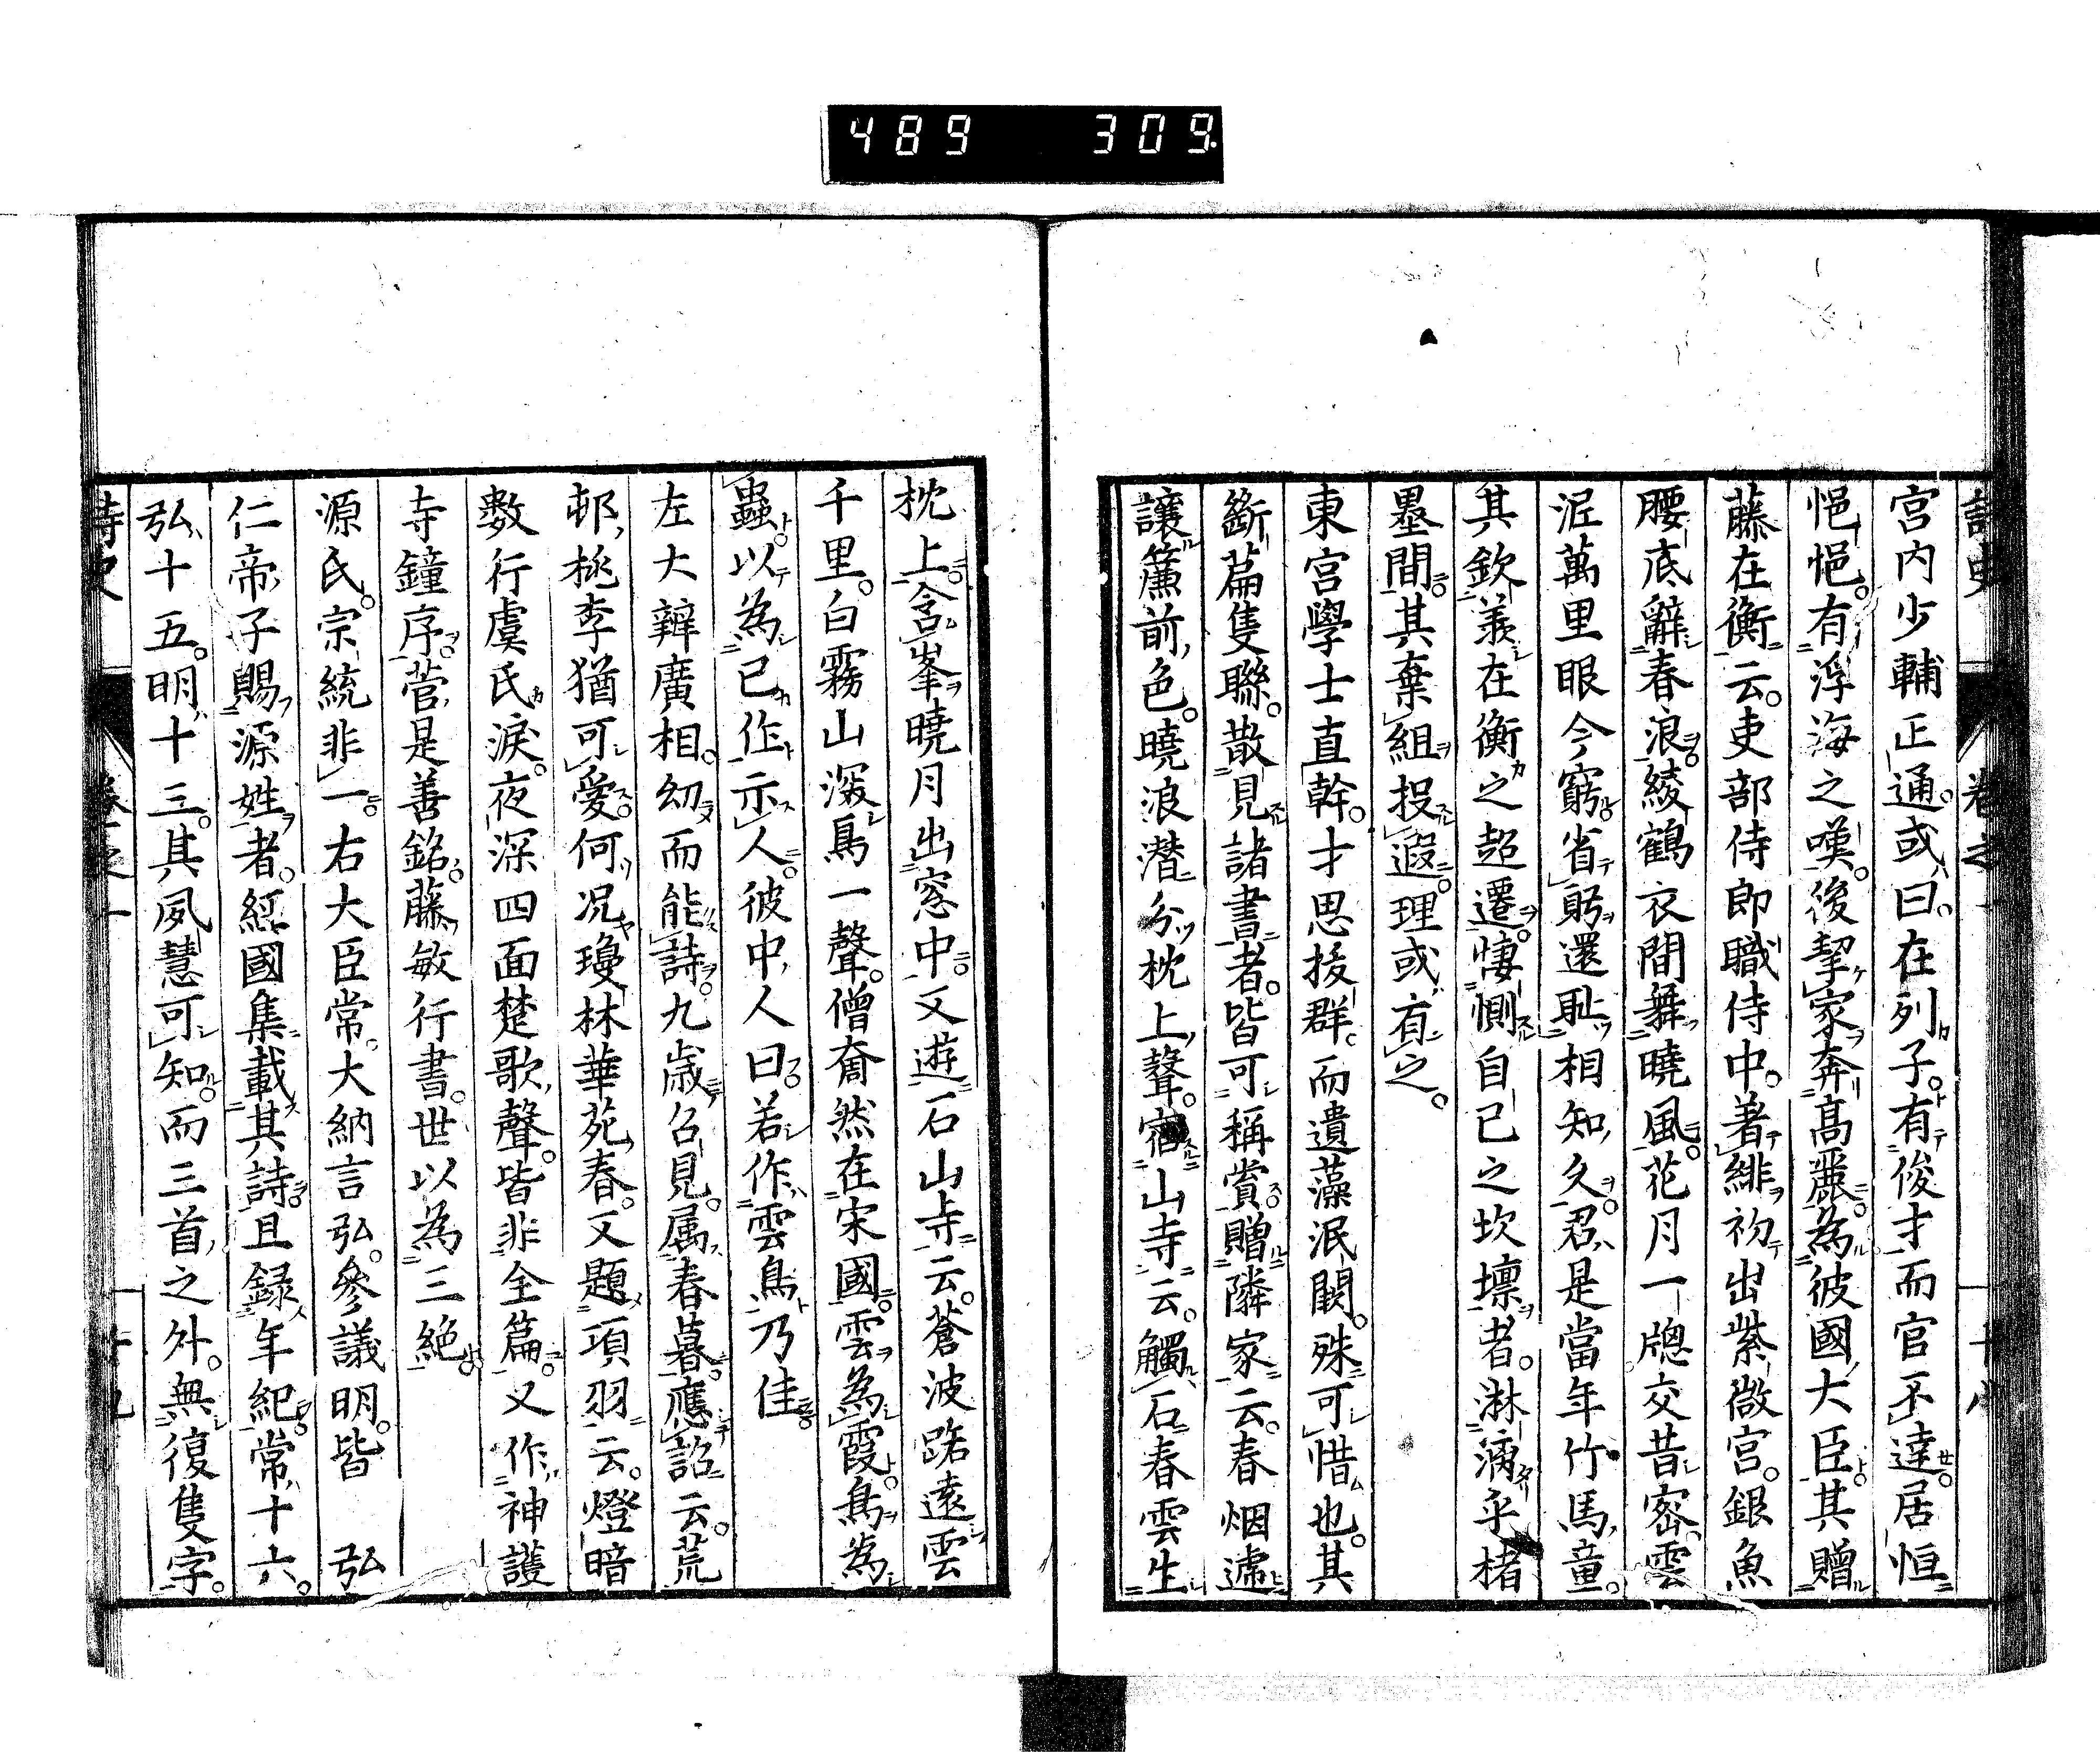 489 309
詩史 卷之一 十八
宮内少輔正通。或曰。在列子。有俊才而官不達。居恒
悒悒。有浮海之嘆。後挈家奔高麗。為彼國大臣。其贈
藤在衡云。吏部侍郎職侍中。著緋初出紫微宮。銀魚
腰底辭春浪。綾鶴衣間舞曉風。花月一牕交昔密。雲
泥萬里眼今窮。省躬還恥相知久。君是當年竹馬童。
其欽羨在衡之超遷。悽惻自己之坎壈者。淋漓乎楮
墨間。其棄組投遐。理或有之。
東宮學士直幹。才思拔群。而遺藻泯闕。殊可惜也。其
斷篇隻聯。散見諸書者。皆可稱賞。贈隣家云。春烟遞
讓簾前色。曉浪潜分枕上聲。宿山寺云。觸石春雲生
枕上。含峯曉月出窓中。又遊石山寺云。蒼波路遠雲
千里。白霧山深鳥一聲。僧奝然在宋國。雲為霞。鳥為
蟲。以為已作示人。彼中人曰。若作雲鳥乃佳。
左大辨廣相。幼而能詩。九歲召見。属春暮。應詔云。荒
邨桃李猶可愛。何况瓊林華苑春。又題項羽云。燈暗
數行虞氏淚。夜深四面楚歌聲。皆非全篇。又作神護
寺鐘序。菅是善銘。藤敏行書。世以為三絶。
源氏。宗統非一。右大臣常。大納言弘。參議明。皆 弘
仁帝子賜源姓者。經國集載其詩。且録年紀。常十六。
弘十五。明十三。其夙慧可知。而三首之外。無復隻字。
詩史 卷之一 十九